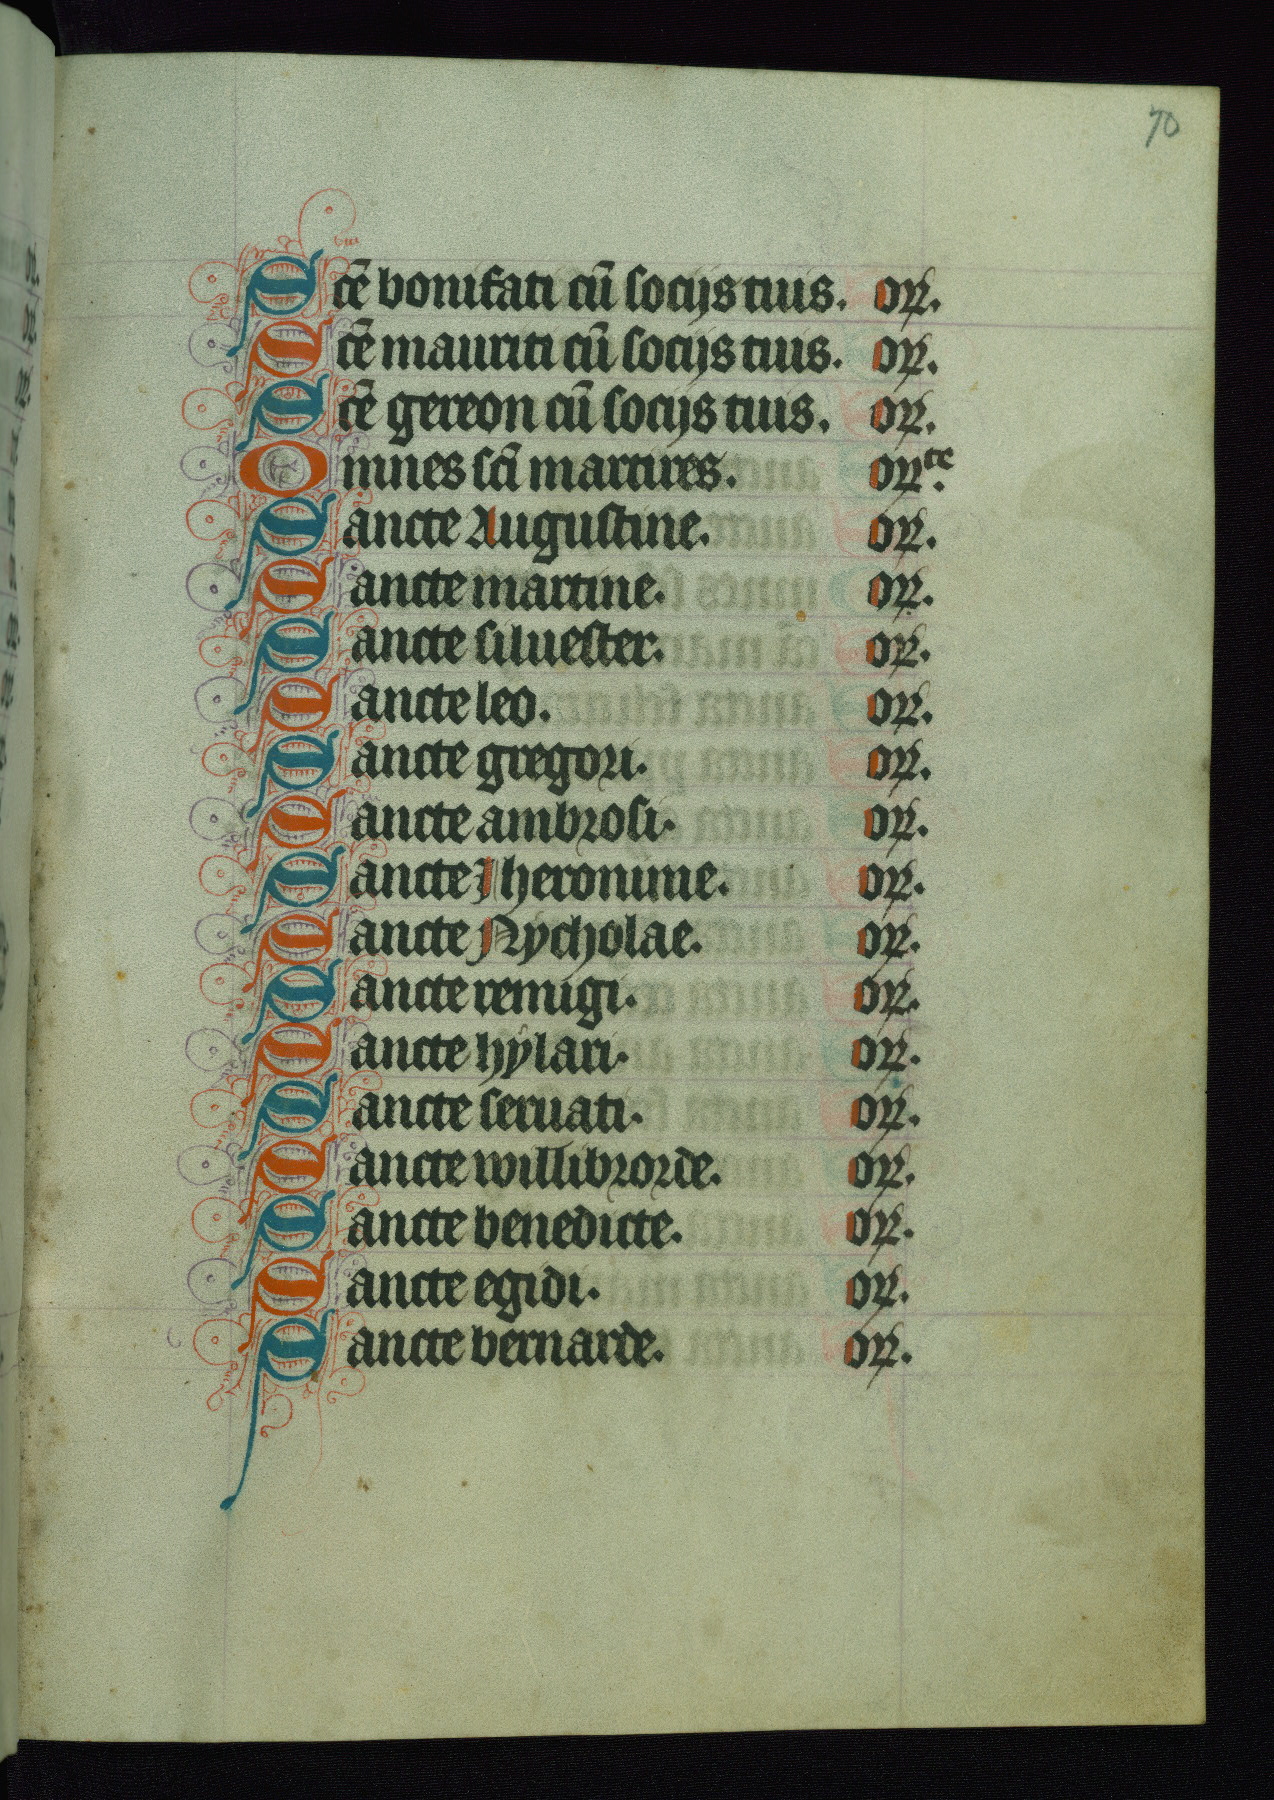 70
Scē bonifati cū socijs tuis. or.
Scē mauriti cū socijs tuis. or.
Scē gereon cū socijs tuis. or.
Omnes scī martires. orte.
Sancte Augustine. or.
Sancte martine. or.
Sancte siluester. or.
Sancte leo. or.
Sancte gregori. or.
Sancte ambrosi. or.
Sancte Jheronime. or.
Sancte Nycholae. or.
Sancte remigi. or.
Sancte hylari. or.
Sancte seruati. or.
Sancte willibrorde. or.
Sancte benedicte. or.
Sancte egidi. or.
Sancte bernarde. or.